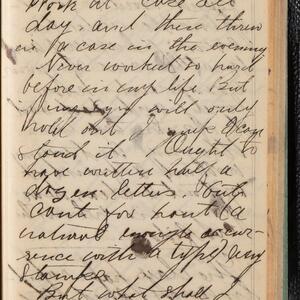 Work at case all
day, and then threw
in a case in the evening
Never worked so hard
before in my life. But
if my eyes will only
hold out I think I can
stand it. Ought to
have written half a
dozen letters. But
can't for want (a
natural enough occur-
rence with a type) any
stamps.
But what shall I